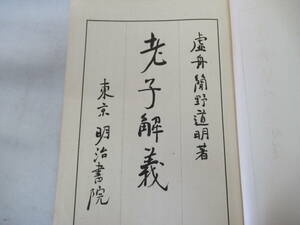 虚舟簡野道明著
老子解義
東京 明治書院